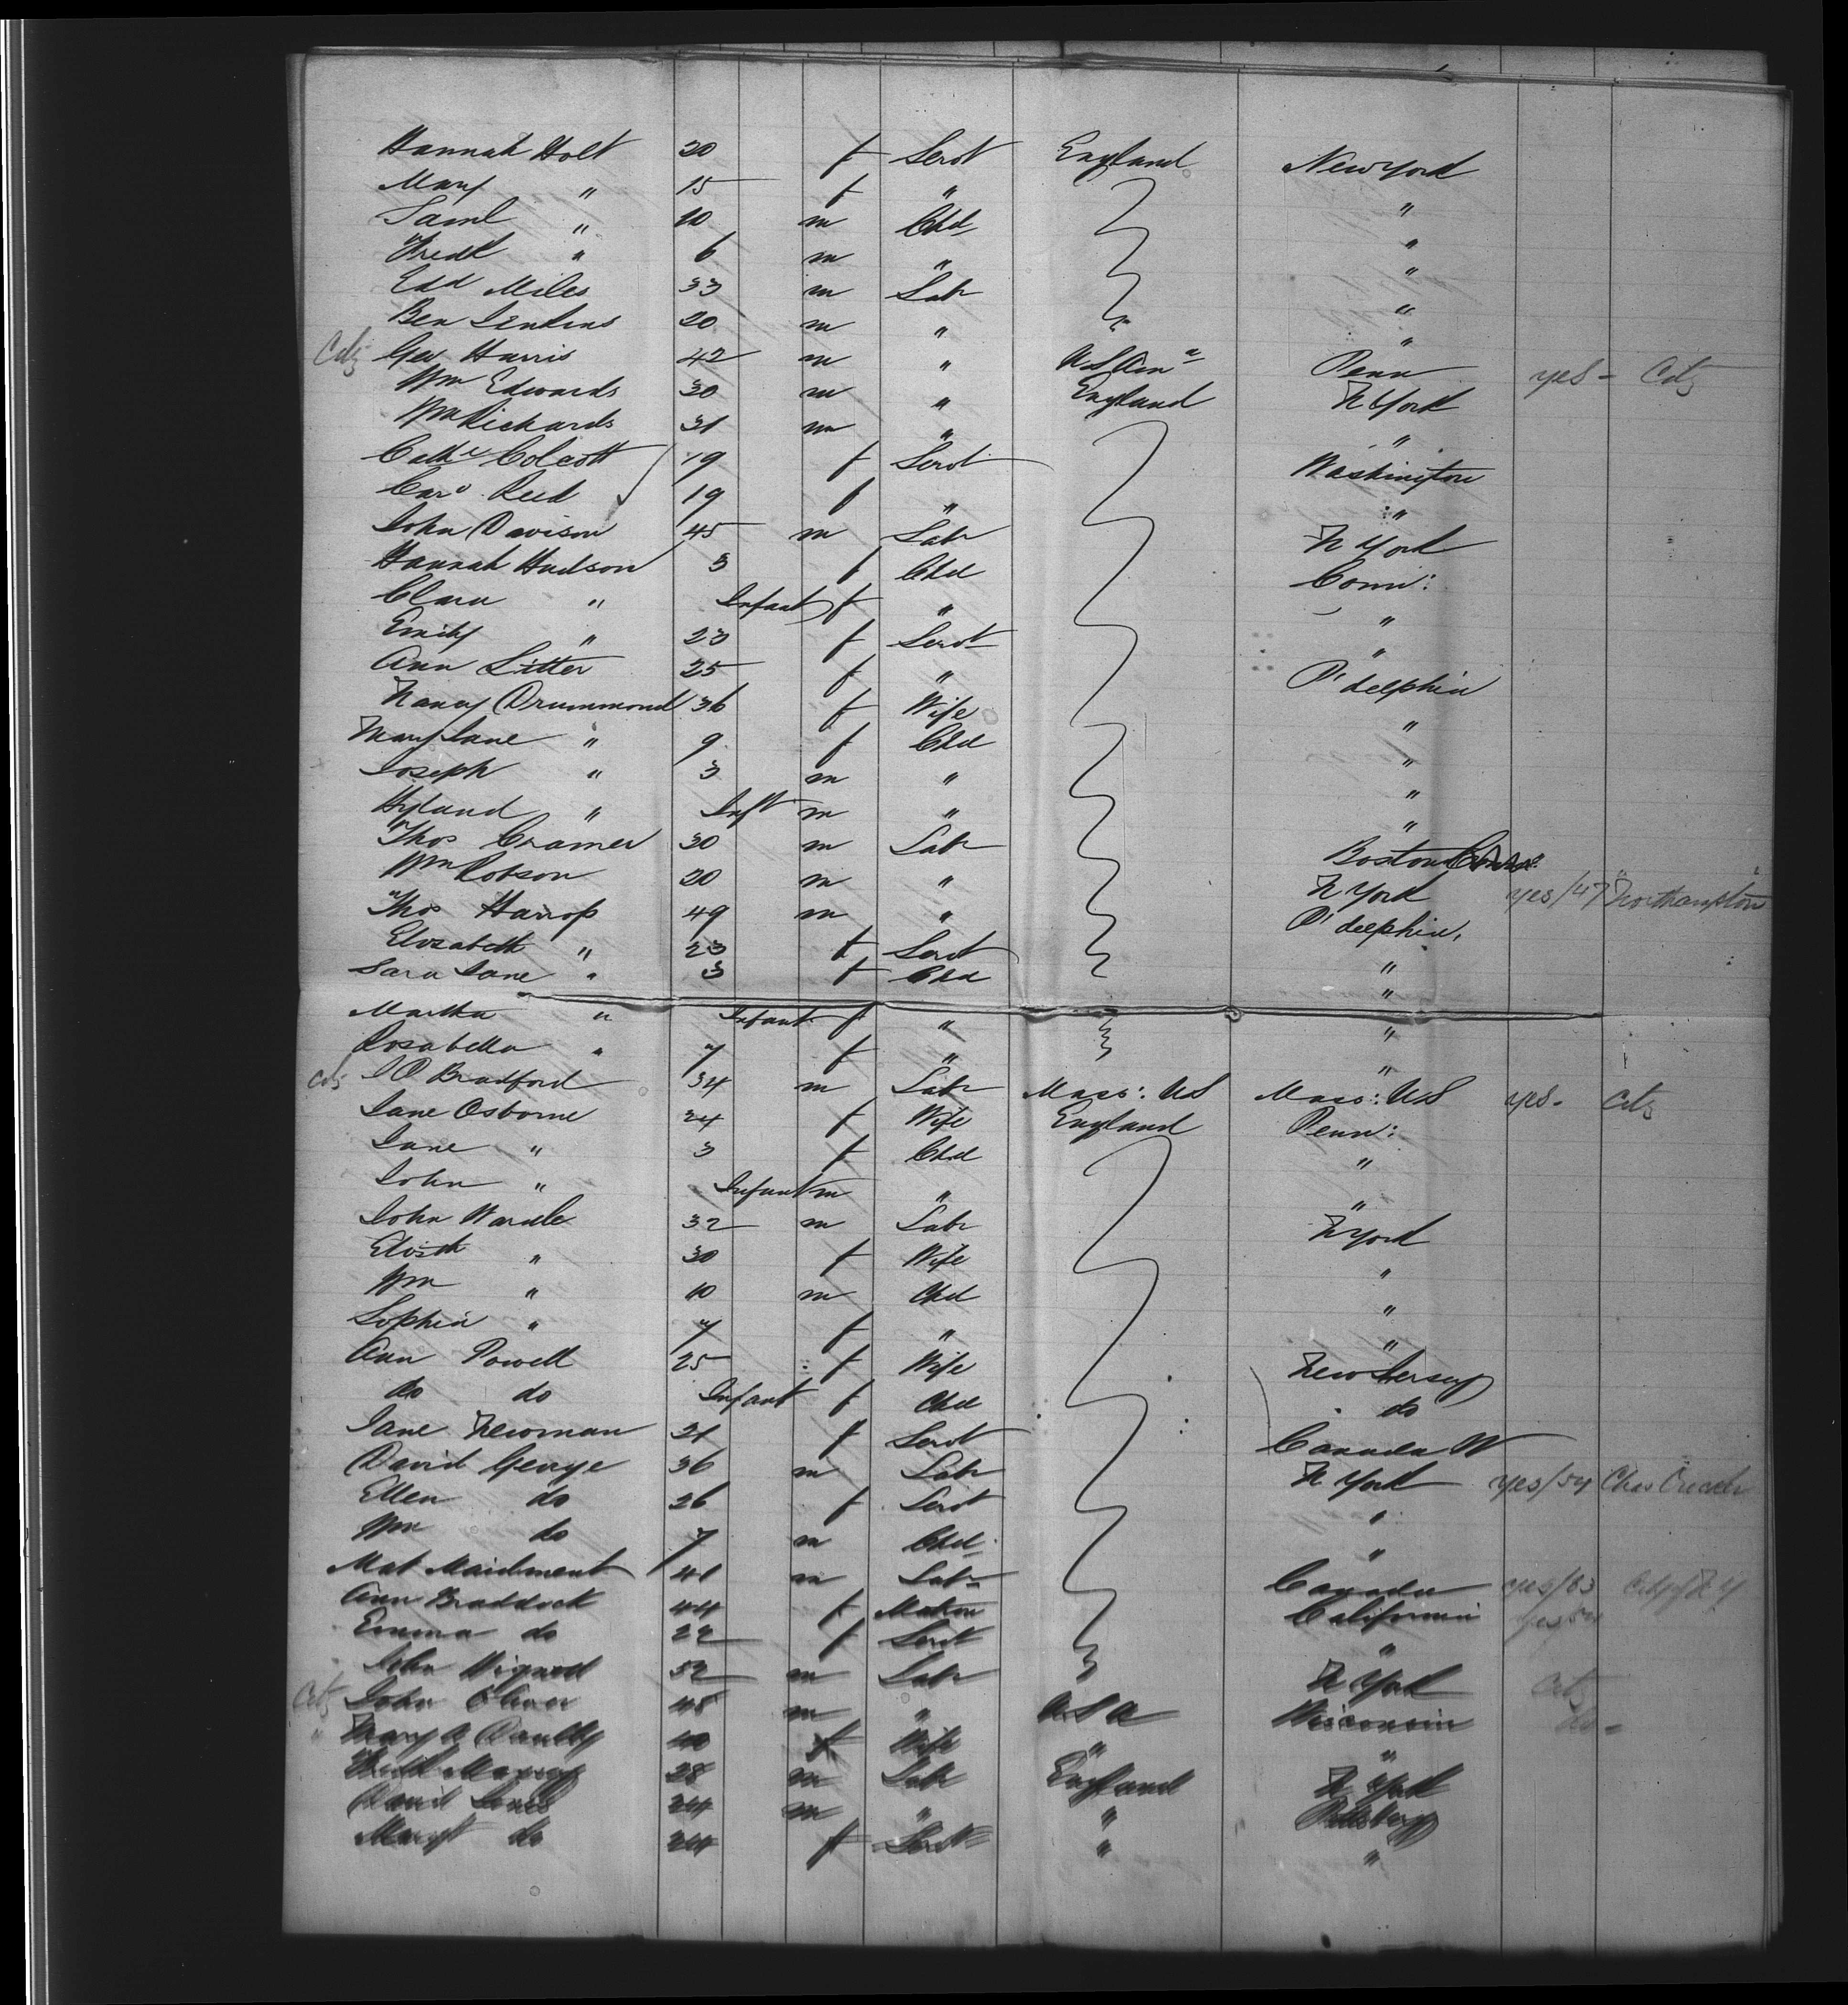 Hannah Holt 20 f Servt England New York
Mary " 15 f " "
Saml " 10 m Chd "
Fredk " 6 m " "
Edd Miles 33 m Labr "
Ben Jenkins 20 m " "
Citz Geo Harris 42 m " U S Ama Penn yes - Citz
Wm Edwards 30 m " England N York
Wm Richards 31 m " "
Cathe Colcott 19 f Servt Washington
Caro Reed 19 f " "
John Davison 45 m Labr N York
Hannah Hudson 3 f Chd Conn:
Clara " Infant f " "
Emily " 23 f Servt "
Ann Litter 25 f " P'delphia
Nancy Drummond 36 f Wife "
Mary Jane " 9 f Chd "
Joseph " 3 m " "
Hyland " Inft m " "
Thos Cramer 30 m Labr Boston
Wm Robson 20 m " N York yes/47 Northampton
Thos Harrop 49 m " P'delphia,
Elizabeth " 23 f Servt "
Sara Jane " 3 f Chd "
Martha " Infant f " "
Rosabella " 7 f " "
Citz J O Bradford 34 m Labr Mass: US Mass: US yes - Citz
Jane Osborne 24 f Wife England Penn:
Jane " 3 f Chd "
John " Infant m " "
John Wardle 32 m Labr N York
Elizth " 30 f Wife "
Wm " 10 m Chd "
Sophia " 7 f " "
Ann Powell 25 f Wife New Jersey
do do Infant f Chd do
Jane Newman 21 f Servt Canada W
David George 36 m Labr N York yes/54 Chas
Ellen do 26 f Servt "
Wm do 7 m Chd "
Mat Maidment 41 m Labr Canada yes/53 City N Y
Ann Braddock 44 f Matron California yes/54
Emma do 22 f Servt "
John 52 m Labr N York Citz
Citz John Oliver 48 m " U S A Wisconsin do -
" Mary A 40 f Wife " "
Fredk 28 m Labr England N York
David Jones 24 m " " Pittsburg
Margt do 24 f Servt " "